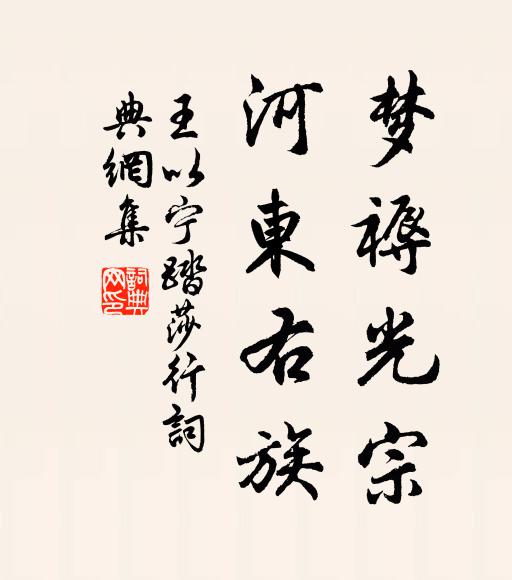 梦禱光宗
河東右族
王以宁踏莎行詞
典網集
詞典網印